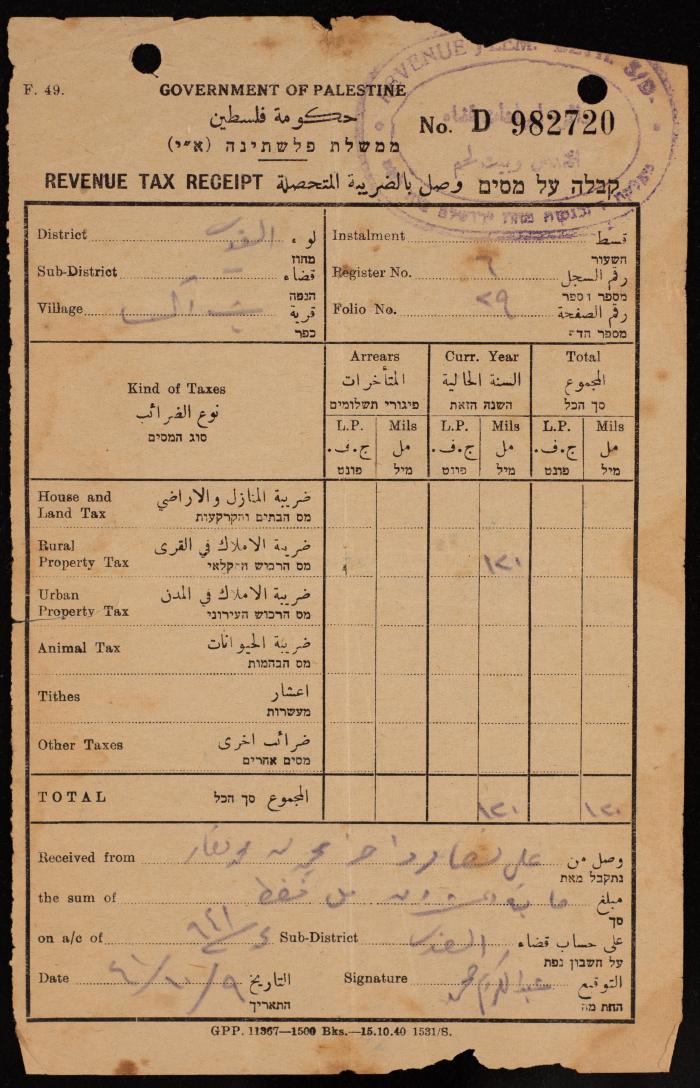 F. 49.
GOVERNMENT OF PALESTINE
حكومة فلسطين
ממשלת פלשתינה (א״י)
No. D 982720
REVENUE TAX RECEIPT وصل بالضريبة المتحصلة קבלה על מסים
District القدس لواء
מחוז
Sub-District قضاء
הנפה
Village قرية
כפר
Instalment قسط
השעור
Register No. ٦ رقم السجل
מספר הספר
Folio No. ٢٩ رقم الصفحة
מספר הדף
Kind of Taxes
نوع الضرائب
סוג המסים
Arrears
المتأخرات
פיגורי תשלומים
Curr. Year
السنة الحالية
השנה הזאת
Total
المجموع
סך הכל
L.P. Mils L.P. Mils L.P. Mils
ج.ف. مل ج.ف. مل ج.ف. مل
פונט מיל פונט מיל פונט מיל
House and ضريبة المنازل والاراضي
Land Tax מס הבתים והקרקעות
Rural ضريبة الاملاك في القرى
Property Tax מס הרכוש החקלאי ١٢١
Urban ضريبة الاملاك في المدن
Property Tax מס הרכוש העירוני
Animal Tax ضريبة الحيوانات
מס הבהמות
Tithes اعشار
מעשרות
Other Taxes ضرائب اخرى
מסים אחרים
TOTAL المجموع סך הכל ١٢١
Received from وصل من
נתקבל מאת
the sum of مل فقط مبلغ
סך
on a/c of Sub-District القدس على حساب قضاء
על חשבון נפת
Date ٤١/١٠/٩ التاريخ
התאריך
Signature التوقيع
החתימה
GPP. 11367—1500 Bks.—15.10.40 1531/S.